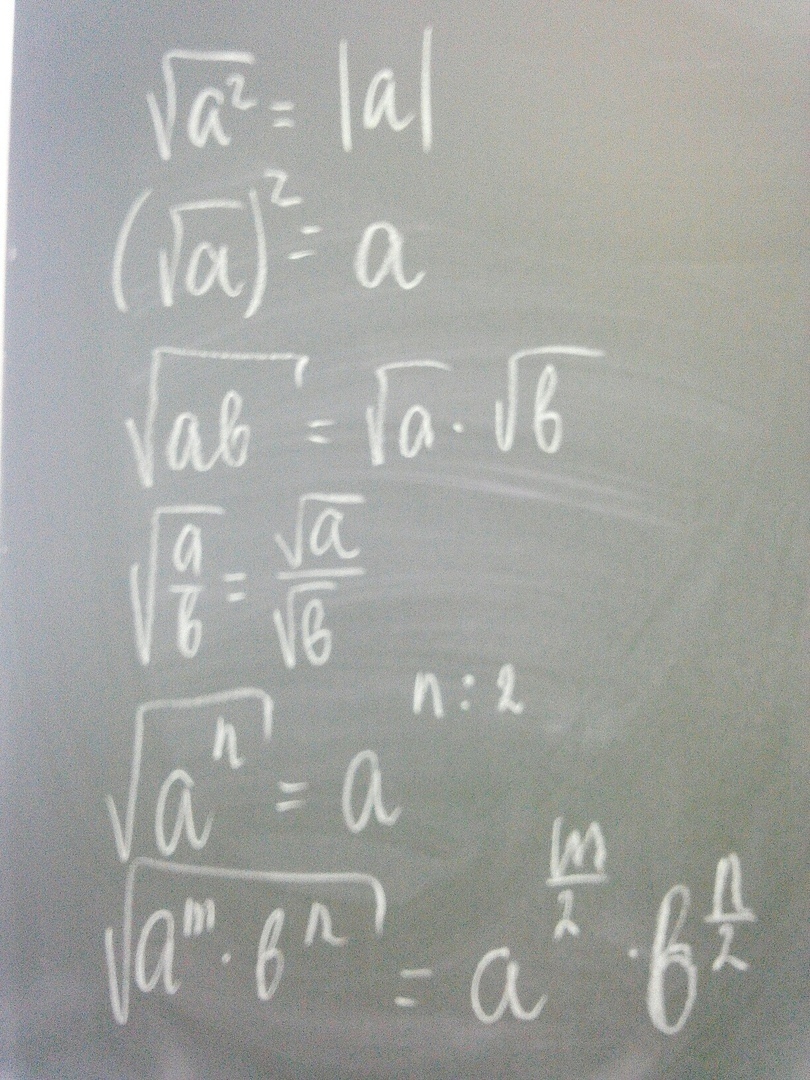 √a² = |a|
(√a)² = a
√ab = √a · √b
√(a/b) = √a/√b
√aⁿ = a^(n:2)
√(aᵐ · bⁿ) = a^(m/2) · b^(n/2)